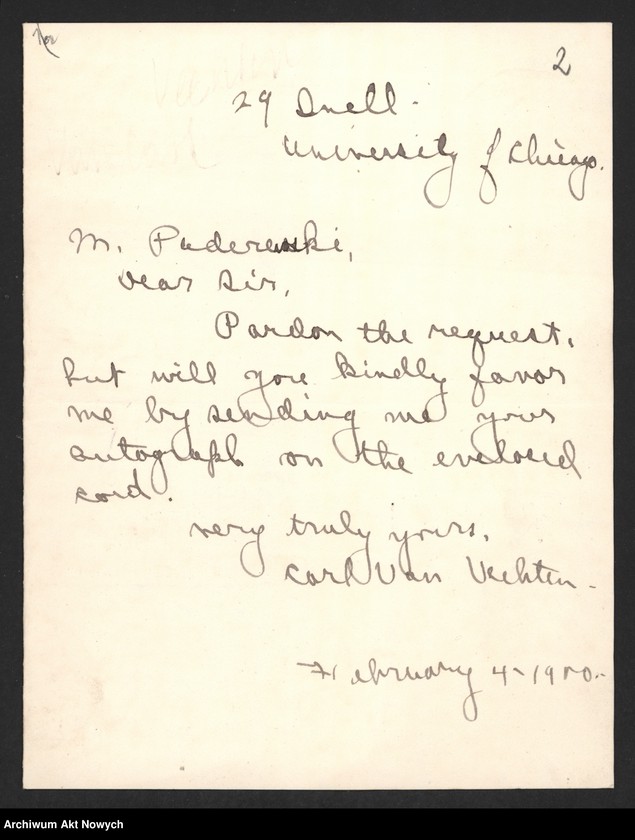 2
29 Snell.
University of Chicago.
M. Paderewski,
Dear Sir,
Pardon the request,
but will you kindly favor
me by sending me your
autograph on the enclosed
card.
Very truly yours,
Carl Van Vechten.
February 4-1900.
Archiwum Akt Nowych